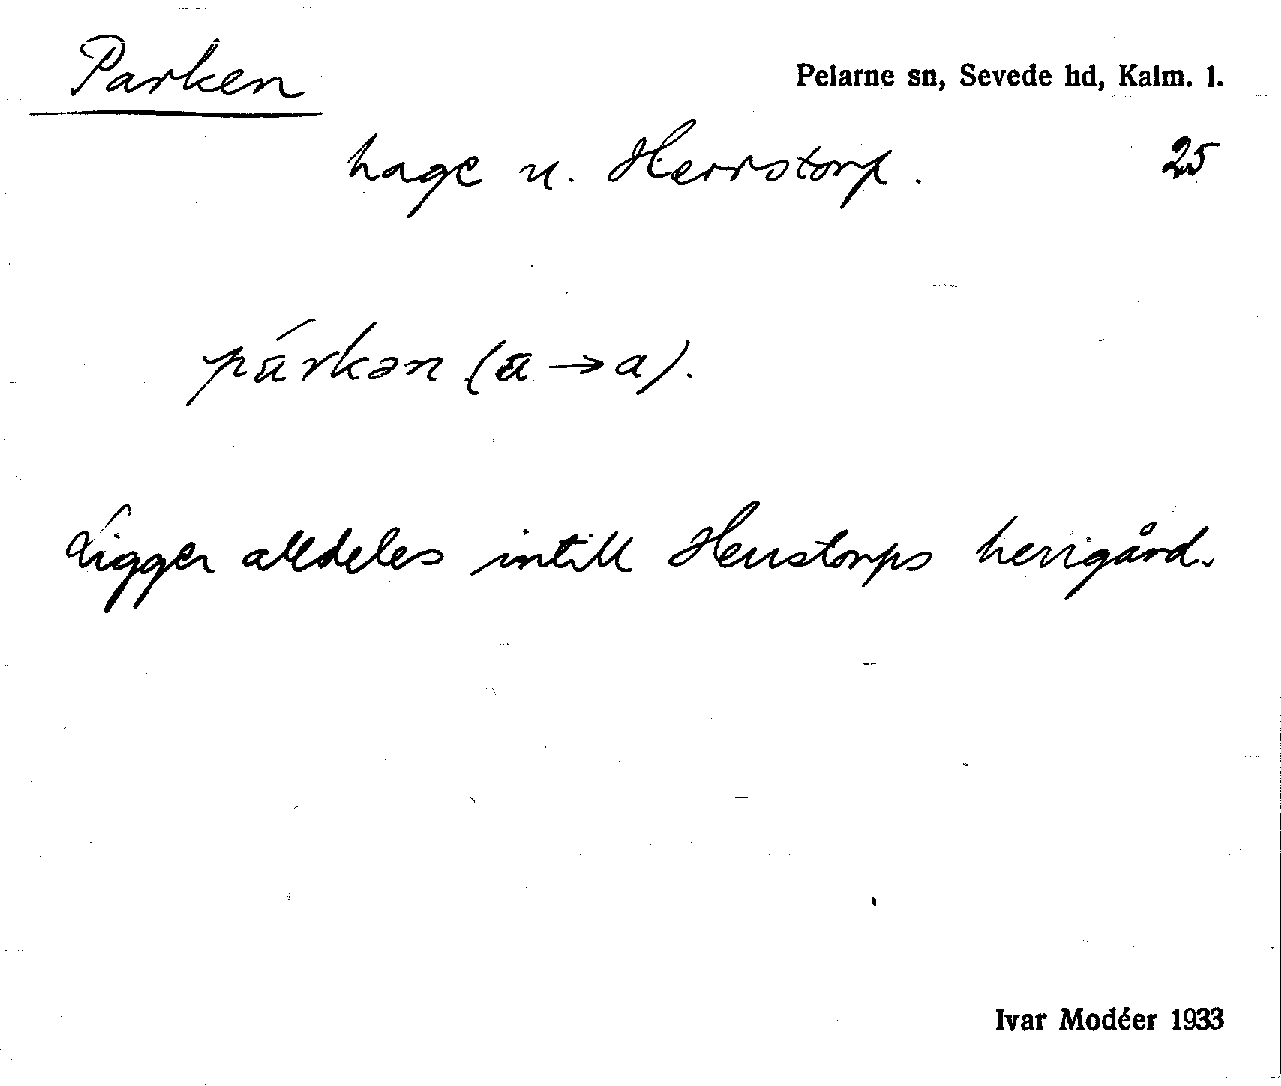 Parken
Pelarne sn, Sevede hd, Kalm. l.
hage u. Herrstorp.
25
párkən (a → a).
Ligger alldeles intill Herrstorps herrgård.
Ivar Modéer 1933